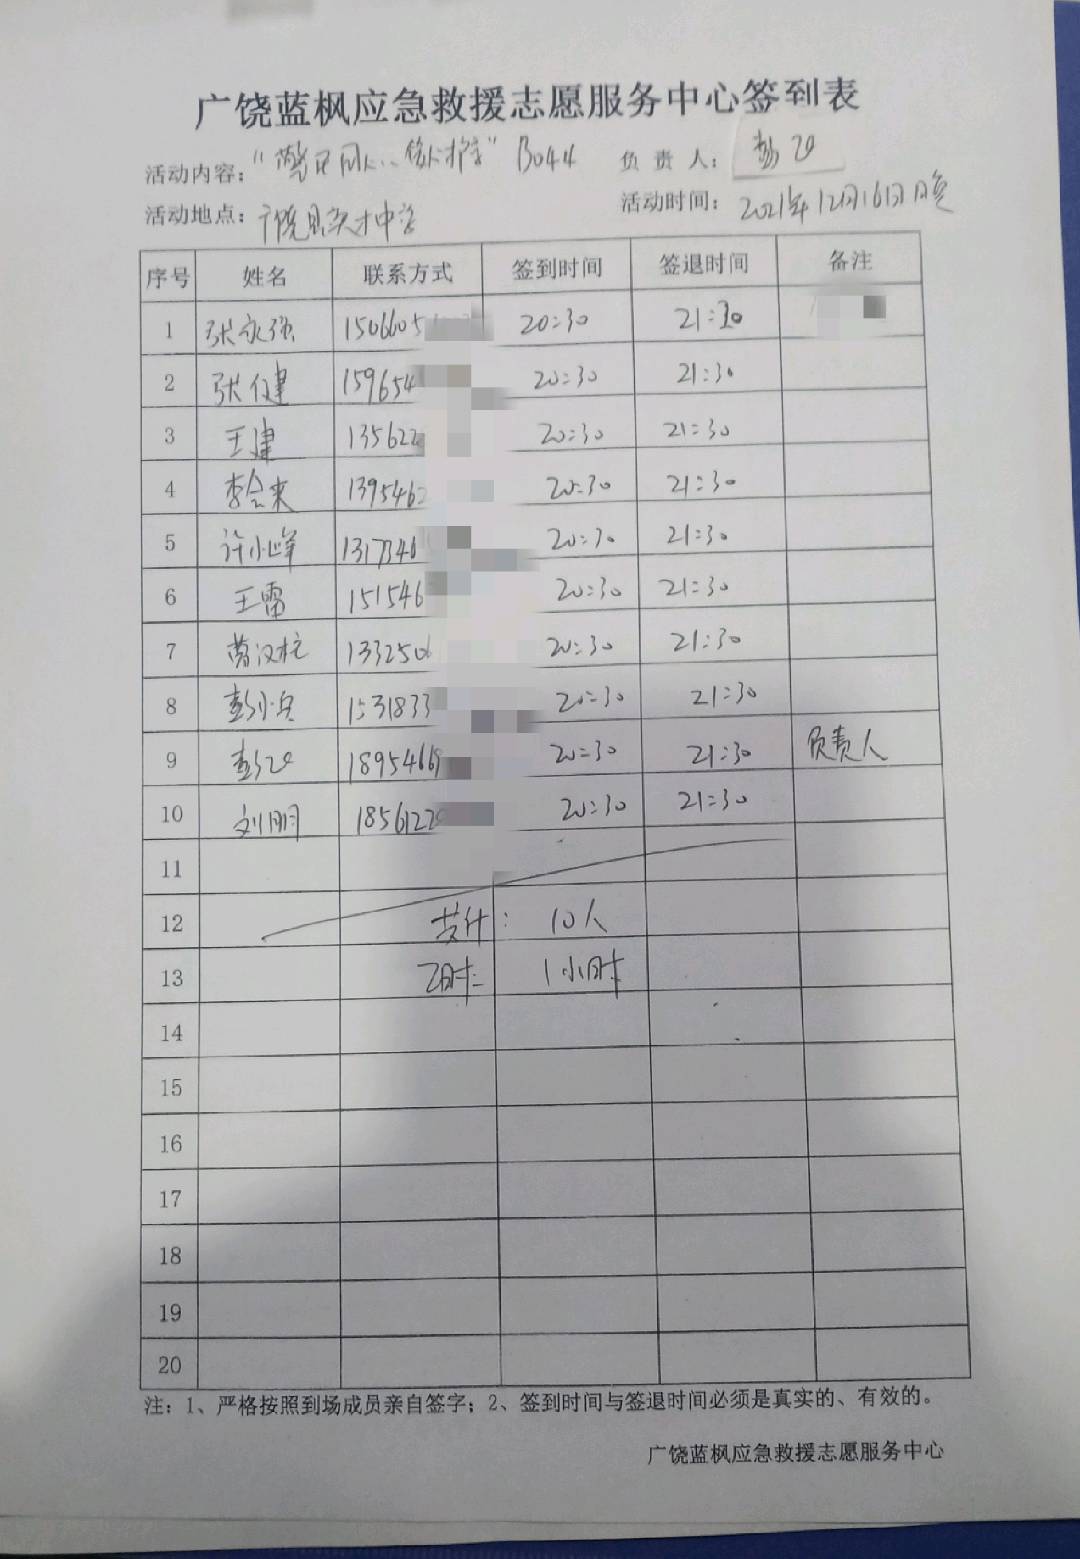 广饶蓝枫应急救援志愿服务中心签到表
活动内容：“警民同心 护学” B044 负责人：彭
活动地点：广饶县英才中学 活动时间：2021年12月16日晚
序号 姓名 联系方式 签到时间 签退时间 备注
1 张永强 1506605 20:30 21:30
2 张健 159654 20:30 21:30
3 王建 135622 20:30 21:30
4 李会来 139546 20:30 21:30
5 许小峰 1317346 20:30 21:30
6 王雷 151546 20:30 21:30
7 汉 1332506 20:30 21:30
8 彭小兵 1531833 20:30 21:30
9 彭 1895466 20:30 21:30 负责人
10 刘明 1856122 20:30 21:30
11
12 共计： 10人
13 1小时
14
15
16
17
18
19
20
注：1、严格按照到场成员亲自签字；2、签到时间与签退时间必须是真实的、有效的。
广饶蓝枫应急救援志愿服务中心